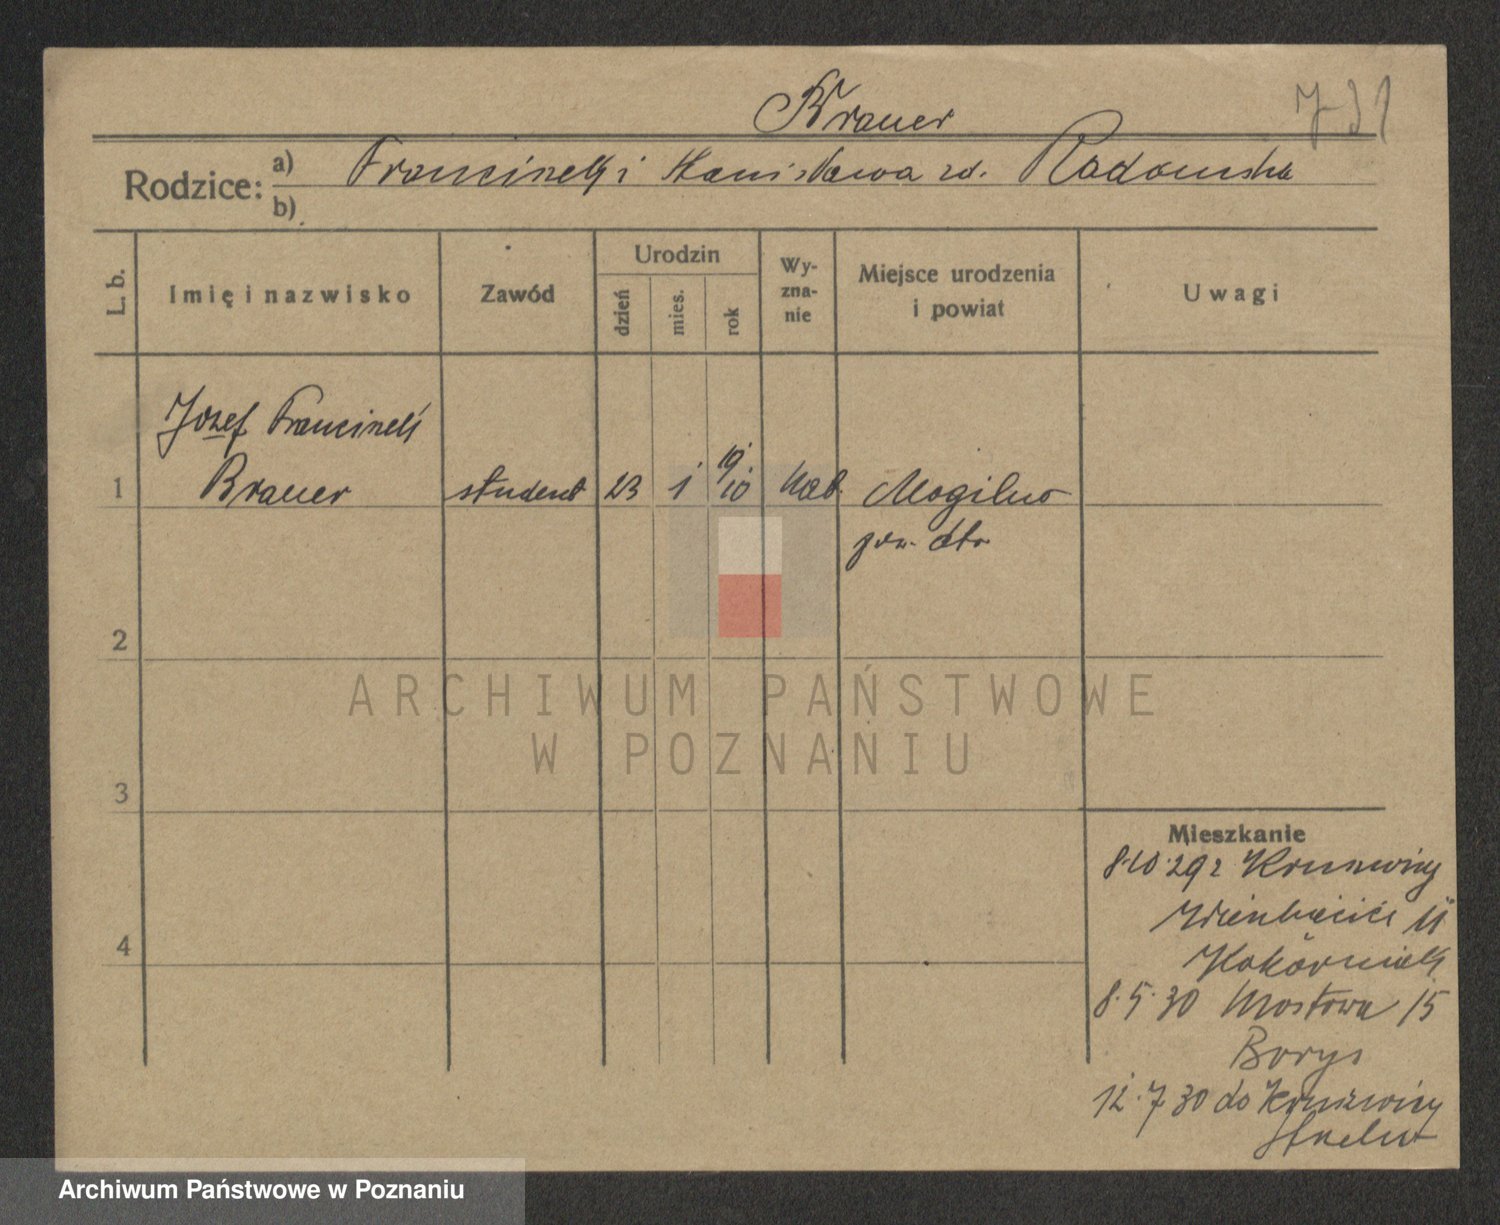 Brauer
Rodzice: a) Franciszek i Stanisława zd. Radomska
b)
L. b.
Imię i nazwisko
Zawód
Urodzin
dzień
mies.
rok
Wy-
zna-
nie
Miejsce urodzenia
i powiat
Uwagi
Józef Franciszek
1 Brauer student 23 1 19 10 kat. Mogilno
pow. dto
2
3
4
Mieszkanie
8.10.29 z Kruszwicy
11
8.5.30 Mostowa 15
Borys
12.7.30 do Kruszwicy
ARCHIWUM PAŃSTWOWE
W POZNANIU
Archiwum Państwowe w Poznaniu